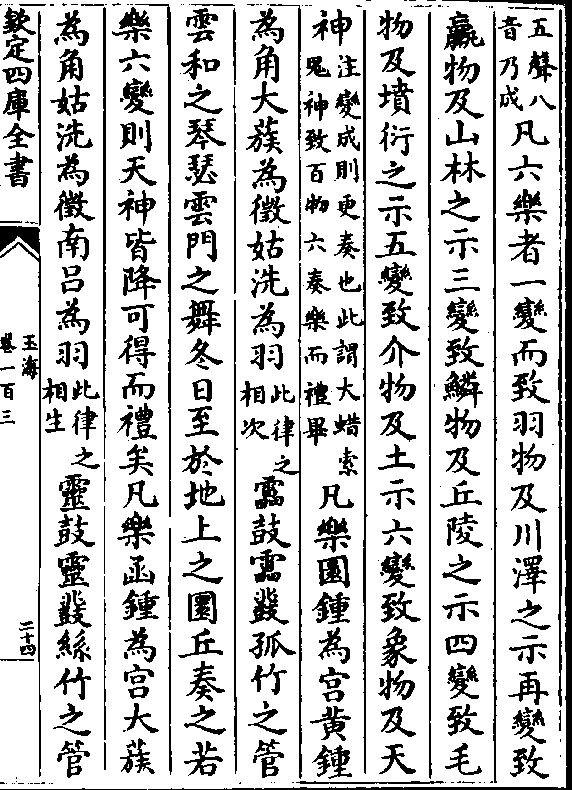 五聲八音乃成凡六樂者一變而致羽物及川澤之示再變致
羸物及山林之示三變致鱗物及丘陵之示四變致毛
物及墳衍之示五變致介物及土示六變致象物及天
神注變成則更奏也此謂大蜡索鬼神致百物六奏樂而禮畢凡樂圜鍾為宫黄鍾
為角大蔟為徵姑洗為羽此律之相次靁鼓靁鼗孤竹之管
雲和之琴瑟雲門之舞冬日至於地上之圜丘奏之若
樂六變則天神皆降可得而禮矣凡樂函鍾為宫大蔟
為角姑洗為徵南吕為羽此律之相生靈鼓靈鼗絲竹之管
欽定四庫全書
玉海
卷一百三
二十四